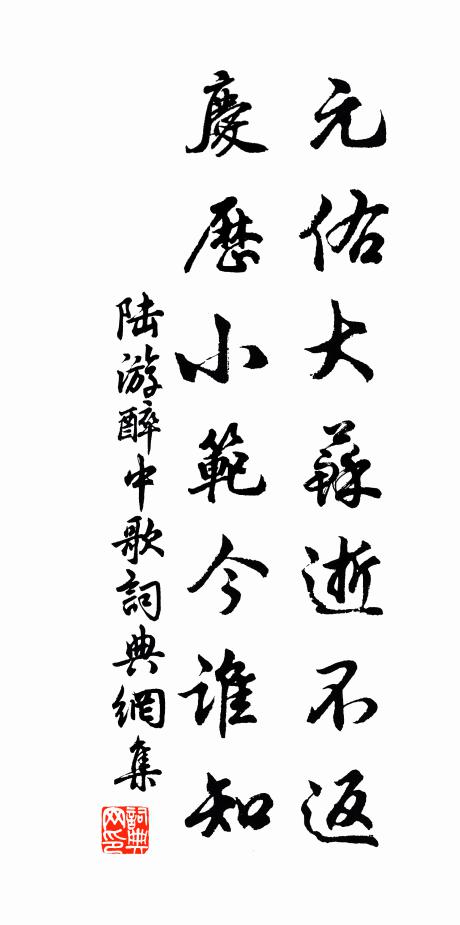 元佑大蘇逝不返
慶歷小範今誰知
陸游醉中歌詞典網集
詞典網印